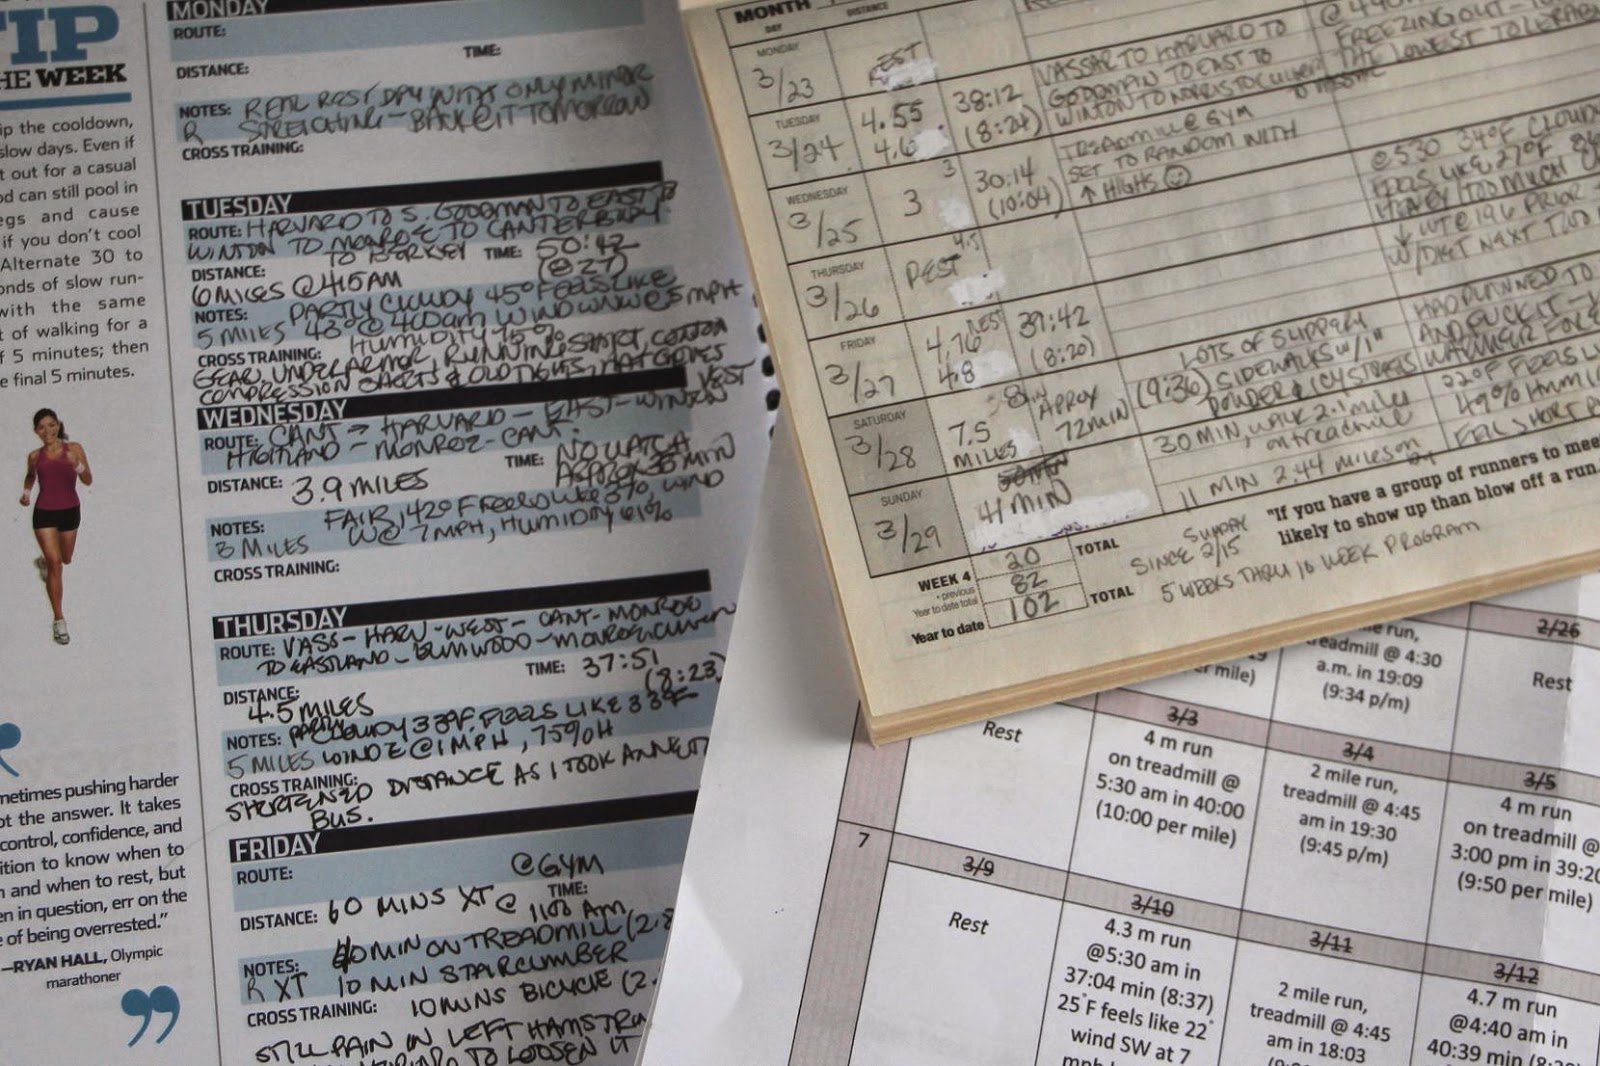 TIP
HE WEEK
ip the cooldown,
slow days. Even if
t out for a casual
od can still pool in
egs and cause
if you don't cool
Alternate 30 to
onds of slow run-
with the same
t of walking for a
f 5 minutes; then
e final 5 minutes.
metimes pushing harder
ot the answer. It takes
control, confidence, and
ition to know when to
n and when to rest, but
en in question, err on the
e of being overrested."
—RYAN HALL, Olympic
marathoner
MONDAY
ROUTE:
TIME:
DISTANCE:
NOTES: REAL REST DAY WITH ONLY MINOR
R STRETCHING - BACK @ IT TOMORROW
CROSS TRAINING:
TUESDAY
ROUTE: HARVARD TO S. GOODMAN TO EAST TO
WINTON TO MONROE TO CANTERBURY
TO BERKELEY TIME: 50:42
DISTANCE: (8:27)
6 MILES @ 415AM
NOTES: PARTLY CLOUDY 45° FEELS LIKE
5 MILES 43° @ 400am WIND WNW @ 5 MPH
HUMIDITY 75%
CROSS TRAINING:
GEAR, UNDER ARMOR, RUNNING SHIRT, COTTON
COMPRESSION SHORTS & OLD TIGHTS, HAT GLOVES
VEST
WEDNESDAY
ROUTE: CANT → HARVARD - EAST - WINTON
HIGHLAND - MONROE - CANT.
TIME: NO WATCH
APPROX 35 MIN
DISTANCE: 3.9 MILES
NOTES: FAIR, 42°F FEELS LIKE 37° WIND
3 MILES W @ 7 MPH, HUMIDITY 61%
CROSS TRAINING:
THURSDAY
ROUTE: VASS - HARV - WEST - CANT - MONROE
TO EASTLAND - ELMWOOD - MONROE
TIME: 37:51
(8:23)
DISTANCE:
4.5 MILES
NOTES: PARTLY CLOUDY 33°F. FEELS LIKE 33°F
5 MILES WIND E @ 1 MPH, 75% H
CROSS TRAINING:
SHORTENED DISTANCE AS I TOOK
BUS.
FRIDAY
ROUTE: @ GYM
TIME:
DISTANCE: 60 MINS XT @ 1100 Am
NOTES: 40 MIN ON TREADMILL (2.8
R XT 10 MIN STAIRCLIMBER
CROSS TRAINING: 10 MINS BICYCLE (2.
STILL PAIN IN LEFT HAMSTRI
TO LOOSEN IT
MONTH
DAY
DISTANCE
MONDAY
3/23 REST
TUESDAY
3/24 4.55 38:12
4.6 (8:24)
VASSAR TO HARVARD TO
GOODMAN TO EAST TO
WINTON TO
FREEZING OUT -
THE LOWEST TOLERAB
WEDNESDAY
3/25 3 3 30:14
(10:04)
TREADMILL @ GYM
SET TO RANDOM WITH
↑ HIGHS ☺
@ 530 34°F CLOUDY
FEELS LIKE 27°F
TOO MUCH
PRIOR
W/DIET NEXT
THURSDAY
3/26 REST 4.5
FRIDAY
3/27 4.76 REST 39:42
4.8 (8:20)
HAD PLANNED TO
AND FUCK IT -
SATURDAY
3/28 7.5 MILES 8 APROX
72 MIN (9:36)
LOTS OF SLIPPERY
SIDEWALKS W/ 1"
POWDER & ICY STREETS
22°F FEELS LI
49% HUMI
SUNDAY
3/29 41 MIN
30 MIN, WALK 2.1 miles
on treadmill
11 MIN 2.44 MILES on
WEEK 4 20 TOTAL
+ previous
Year to date total 82
Year to date 102 TOTAL
SUNDAY
SINCE 2/15
5 WEEKS THRU 10 WEEK PROGRAM
"If you have a group of runners to mee
likely to show up than blow off a run.
er mile)
e run,
readmill @ 4:30
a.m. in 19:09
(9:34 p/m)
2/26
Rest
Rest
3/3
4 m run
on treadmill @
5:30 am in 40:00
(10:00 per mile)
3/4
2 mile run,
treadmill @ 4:45
am in 19:30
(9:45 p/m)
3/5
4 m run
on treadmill @
3:00 pm in 39:20
(9:50 per mile)
7
3/9
Rest
3/10
4.3 m run
@5:30 am in
37:04 min (8:37)
25°F feels like 22°
wind SW at 7
3/11
2 mile run,
treadmill @ 4:45
am in 18:03
3/12
4.7 m run
@4:40 am in
40:39 min